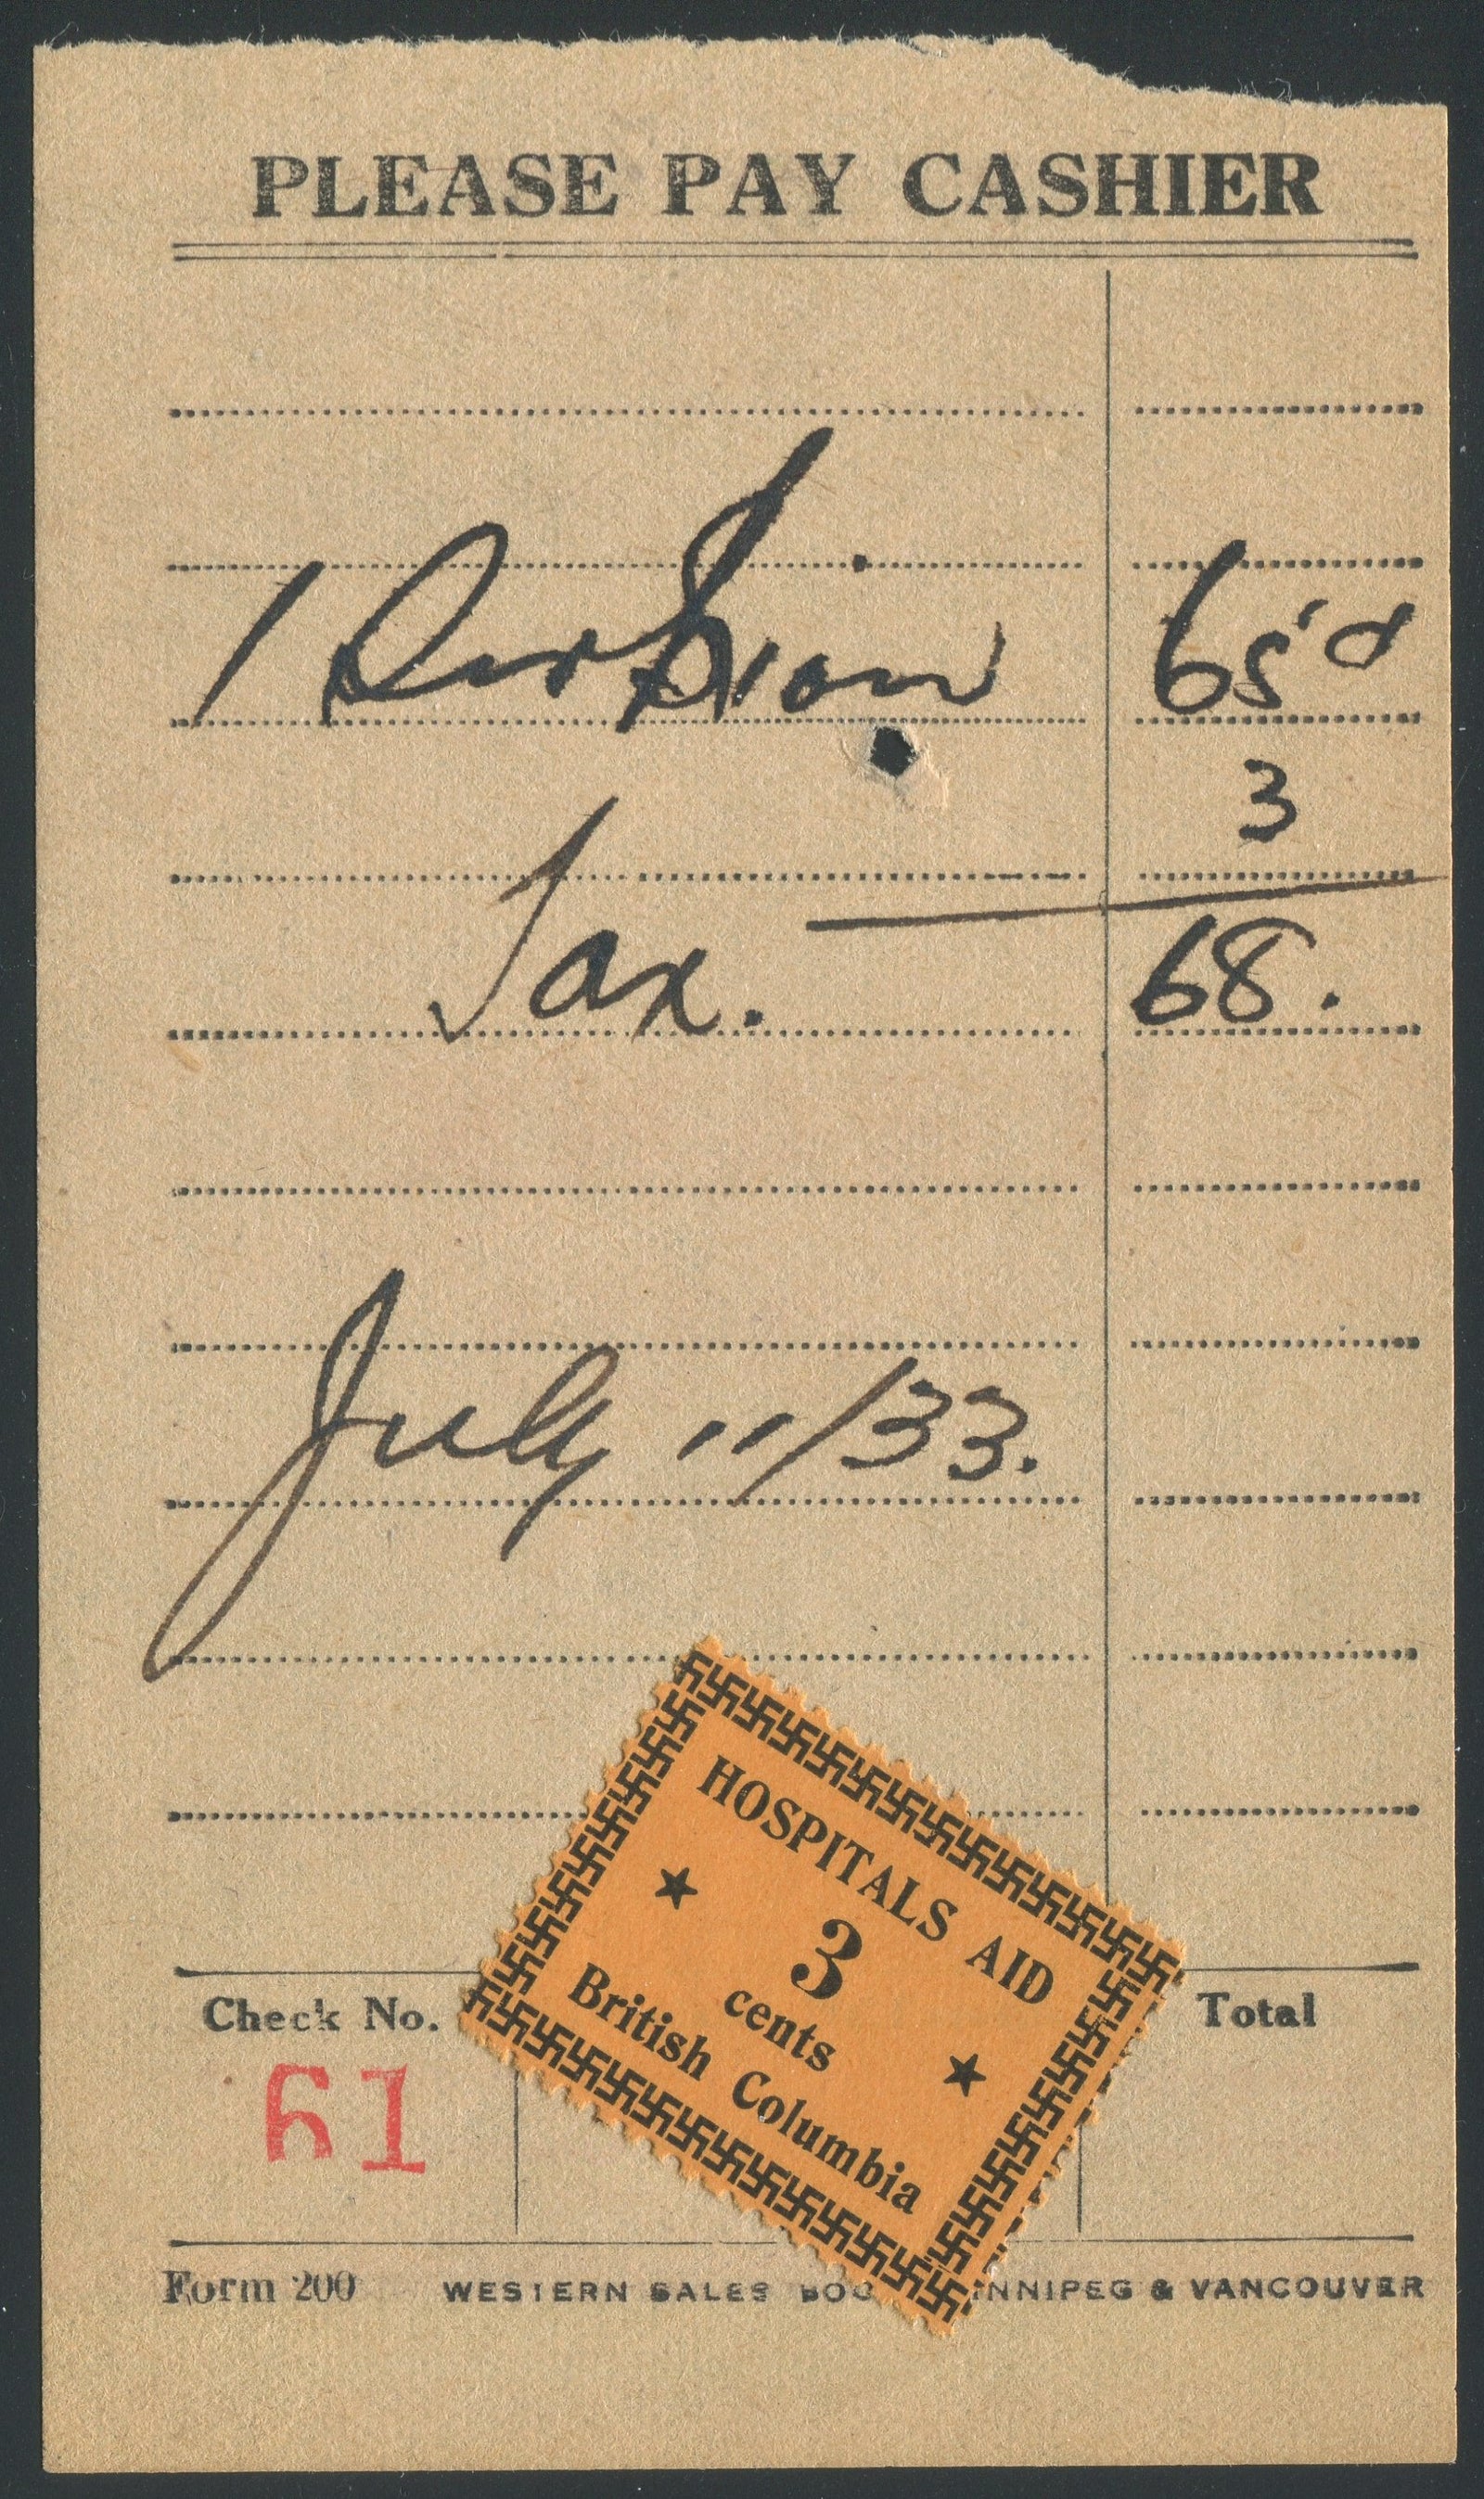 PLEASE PAY CASHIER
1 65¢
3
Tax. 68.
July 11/33.
HOSPITALS AID
3
cents
British Columbia
Check No.
Total
61
Form 200 WESTERN SALES & VANCOUVER